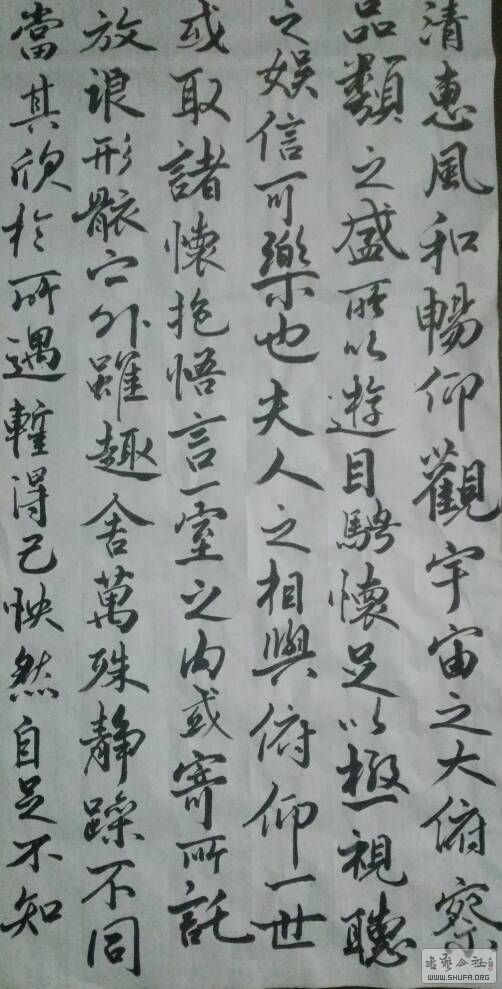 清惠風和暢仰觀宇宙之大俯察
品類之盛所以遊目騁懷足以極視聽
之娛信可樂也夫人之相與俯仰一世
或取諸懷抱悟言一室之內或寄所託
放浪形骸之外雖趣舍萬殊靜躁不同
當其欣於所遇暫得己怏然自足不知
書藝公社
WWW.SHUFA.ORG